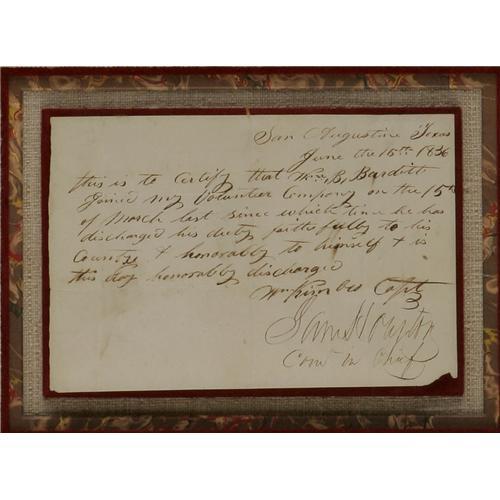 San Augustine Texas
June the 15th 1836
this is to Certify that Wm B. Burditt
Joined my Volunteer Company on the 15th
of March last since which time he has
discharged his duty faithfully to his
Country & honorably to himself & is
this day honorably discharged
Wm Kimbro Capt
Sam Houston
Com in Chief